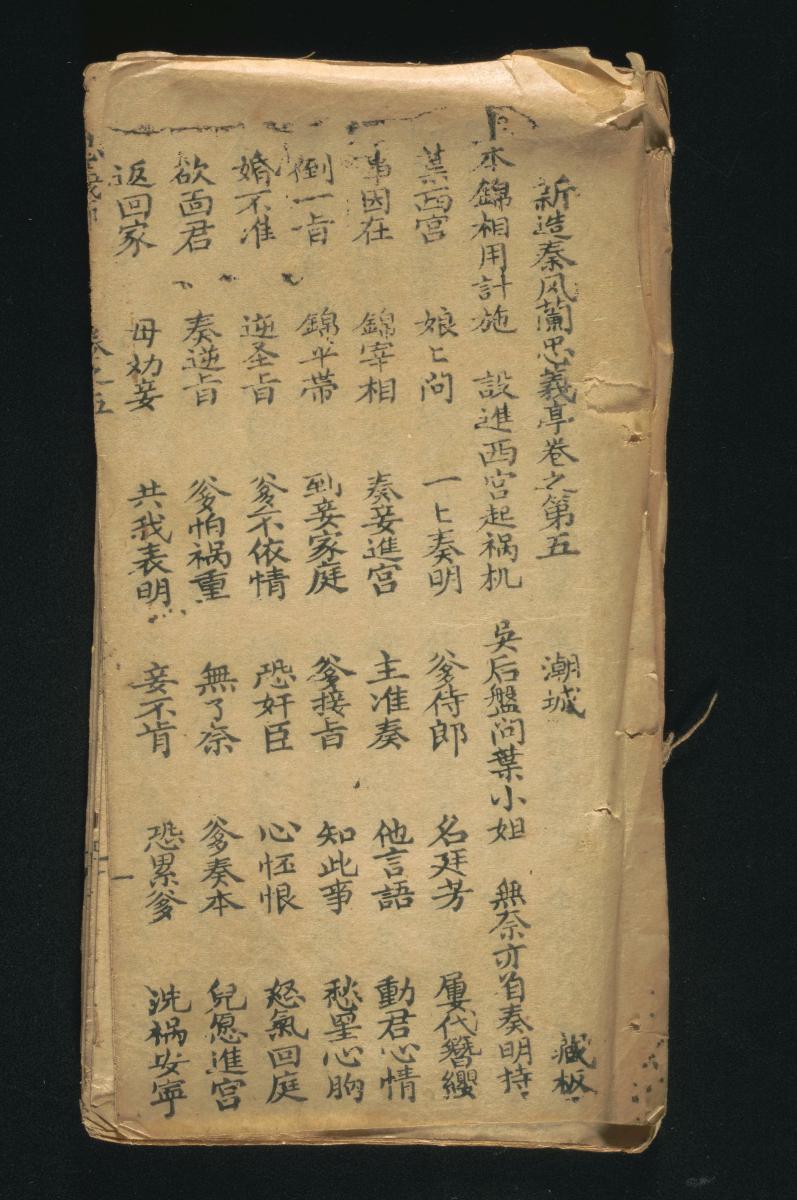 新造秦风蘭忠義亭卷之第五 潮城 藏板
本錦相用計施 設進西宮起祸机 吳后盤问葉小姐 無奈亦自奏明持
葉西宮 娘匕问 一匕奏明 爹侍郎 名廷芳 屢代簪纓
事因在 錦宰相 奏妾進宫 主准奏 他言語 動君心情
倒一旨 錦平帶 到妾家庭 爹接旨 知此事 愁呈心胸
婚不准 逆圣旨 爹不依情 恐奸臣 心怪恨 怒氣回庭
欲面君 奏逆旨 爹怕祸重 無了奈 爹奏本 兒愿進宫
返回家 母劝妾 共我表明 妾不肯 恐累爹 洗祸安寧
卷之五